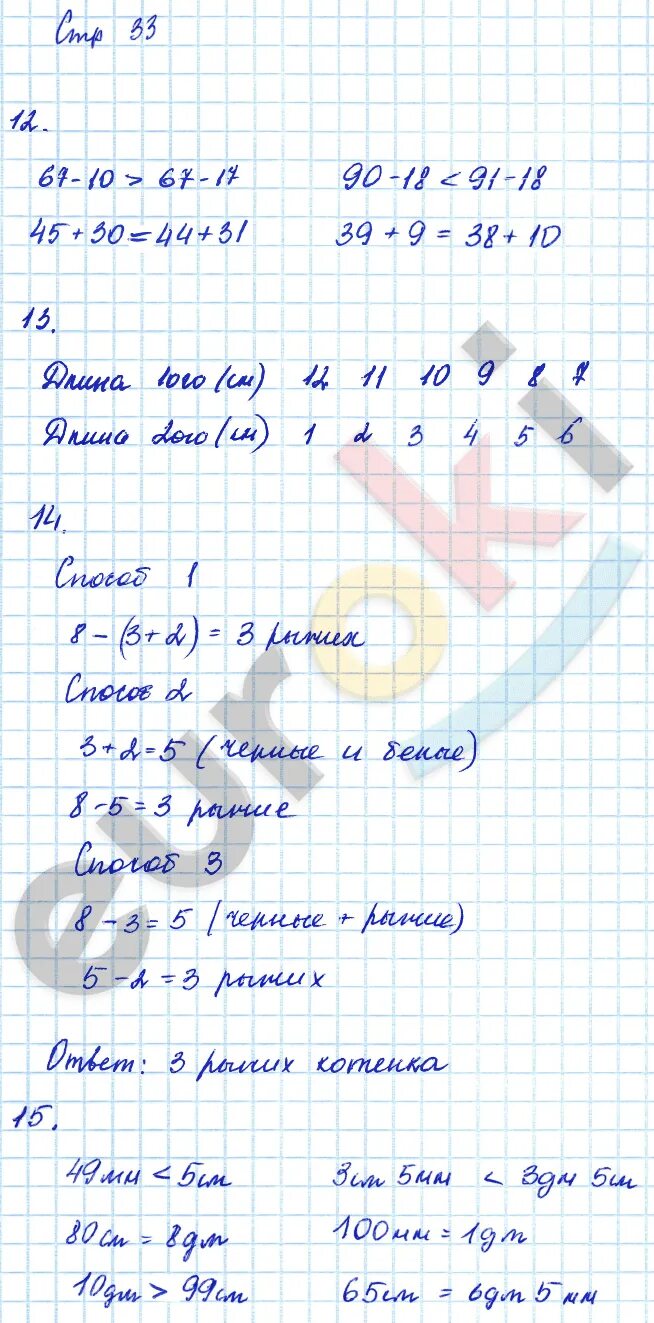 Стр 33
12.
67-10 > 67-17 90-18 < 91-18
45+30=44+31 39+9 = 38+10
13.
Длина 1ого (см) 12 11 10 9 8 7
Длина 2ого (см) 1 2 3 4 5 6
14.
Способ 1
8-(3+2) = 3 рыжих
Способ 2
3+2=5 (черные и белые)
8-5=3 рыжие
Способ 3
8-3=5 (черные + рыжие)
5-2=3 рыжих
Ответ: 3 рыжих котенка
15.
49мм < 5см 3см 5мм < 3дм 5см
80см = 8дм 100мм = 1дм
10дм > 99см 65см = 6дм 5мм
euroki